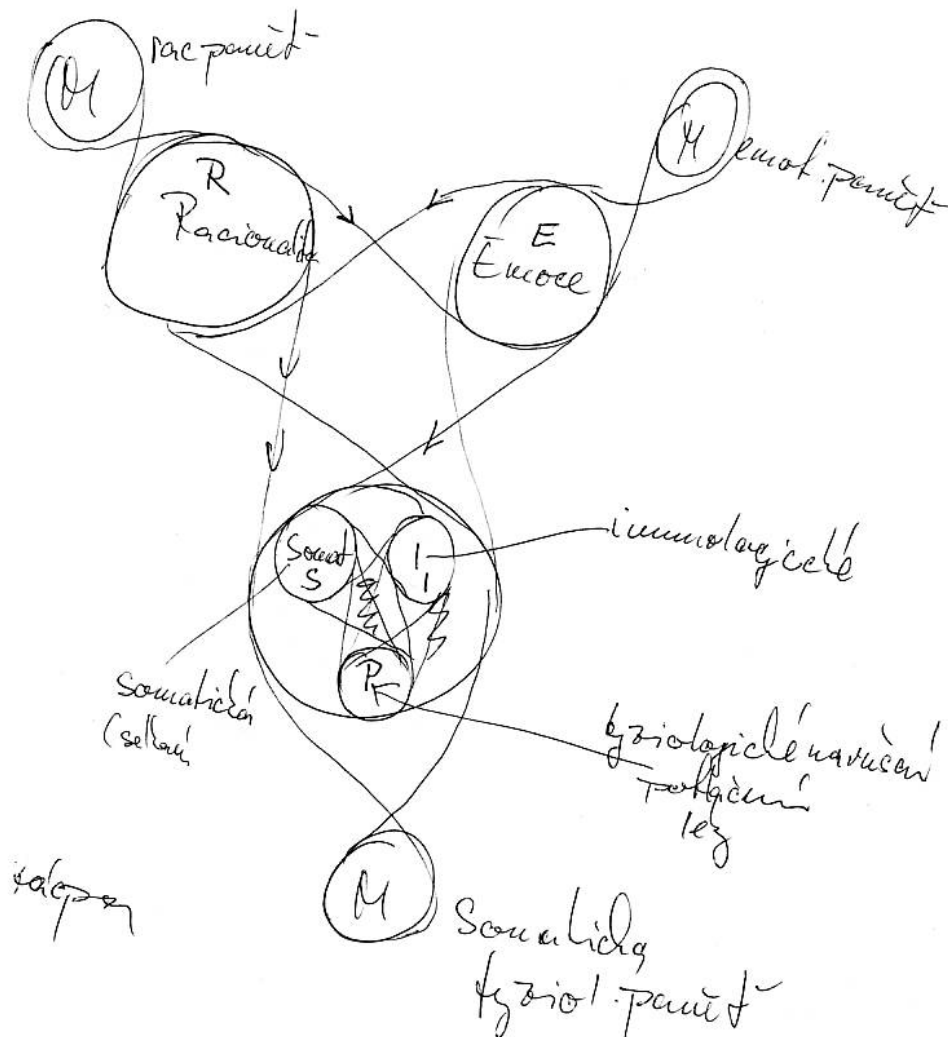 M
rac paměť
M
emot. paměť
R
Racionalita
E
Emoce
Somat
S
I
I
imunologické
PK
somatická
fyziologické narušení
M
Somatická
fyziol. paměť